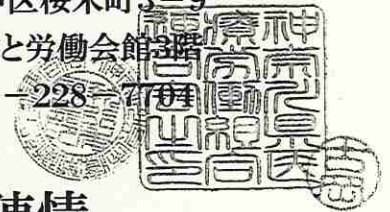 区桜木町3-9
と労働会館3階
-228-7704
神奈川県医
療労働組合
陳情